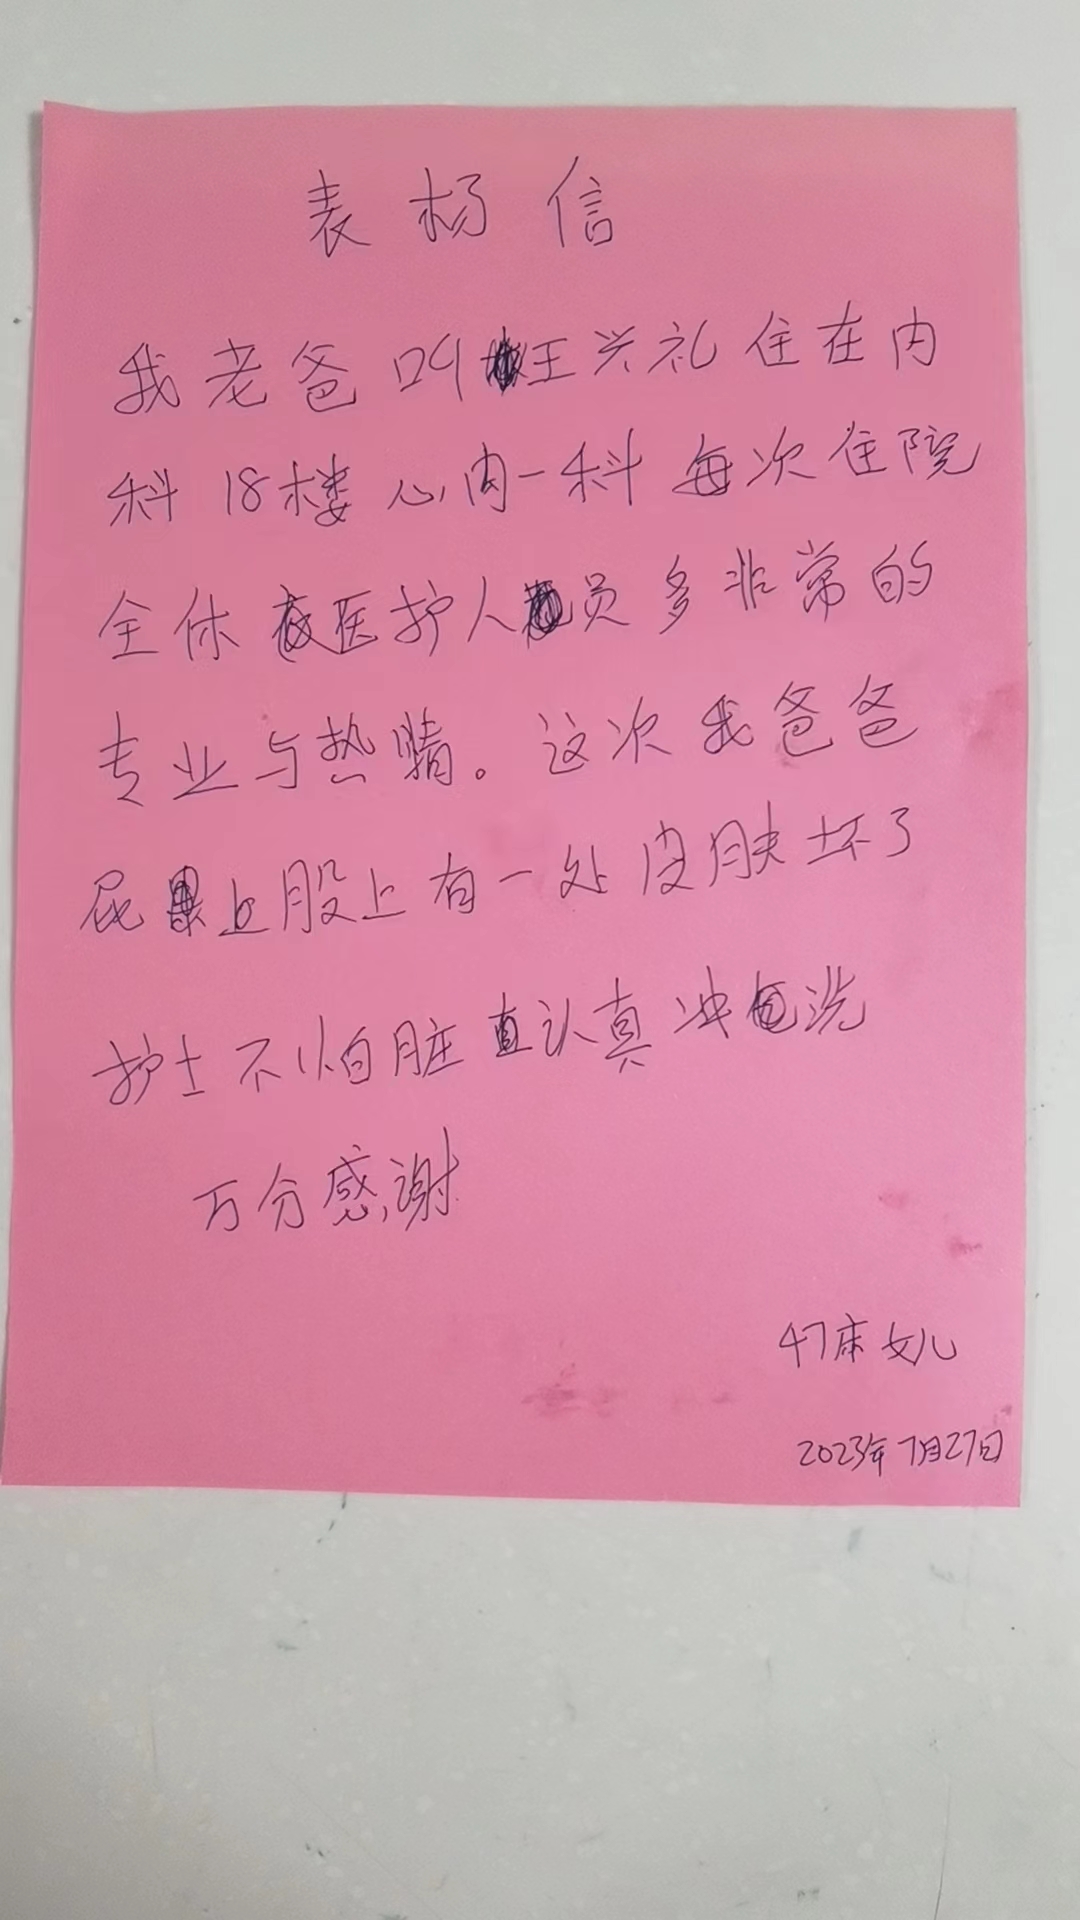 表杨信
我老爸叫王兴礼住在内
科18楼心内一科每次住院
全休医护人员多非常的
专业与热情。这次我爸爸
屁股上有一处皮肤坏了
护士不怕脏认真冲洗
万分感谢
47床女儿
2023年7月27日